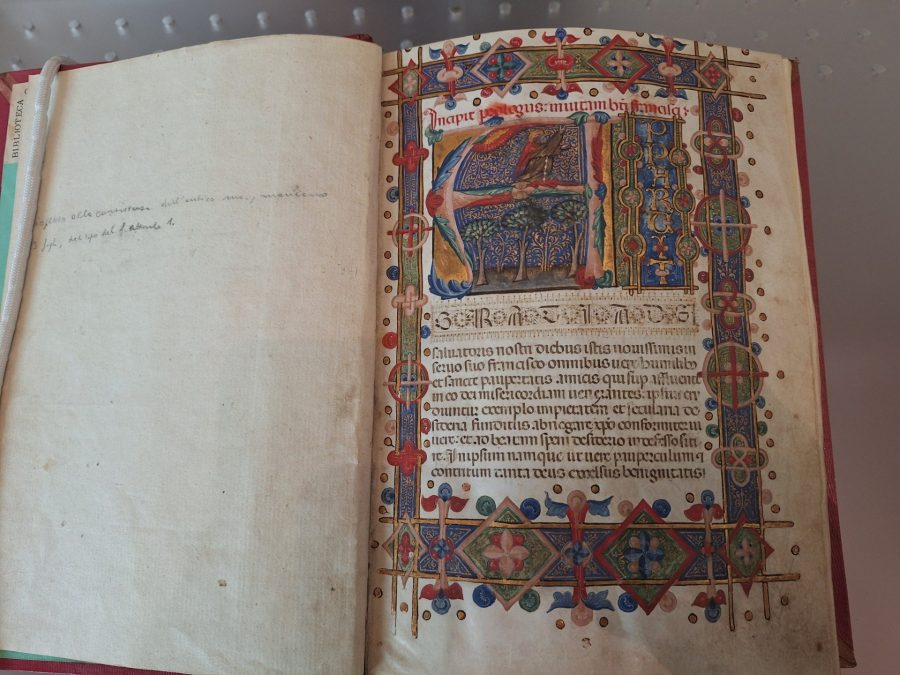 BIBLIOTECA
dell'antico ms., mancano
del tipo del
Incipit prologus: in uitam bti francisci:
APPARUIT
GRATIA DEI
saluatoris nostri diebus istis nouissimis in
seruo suo francisco omnibus uere humilib;
et sancte paupertatis amicis qui sup affluente
in eo dei misericordiam uenerantes: ipsius er
udiuntur exemplo impietatem et secularia de
sideria funditus abnegare: xpo conformiter ui
uere: et ad beatam spem desiderio indefesso siti
re. In ipsum namque ut uere pauperculum et
contritum tanta deus excelsus benignitatis